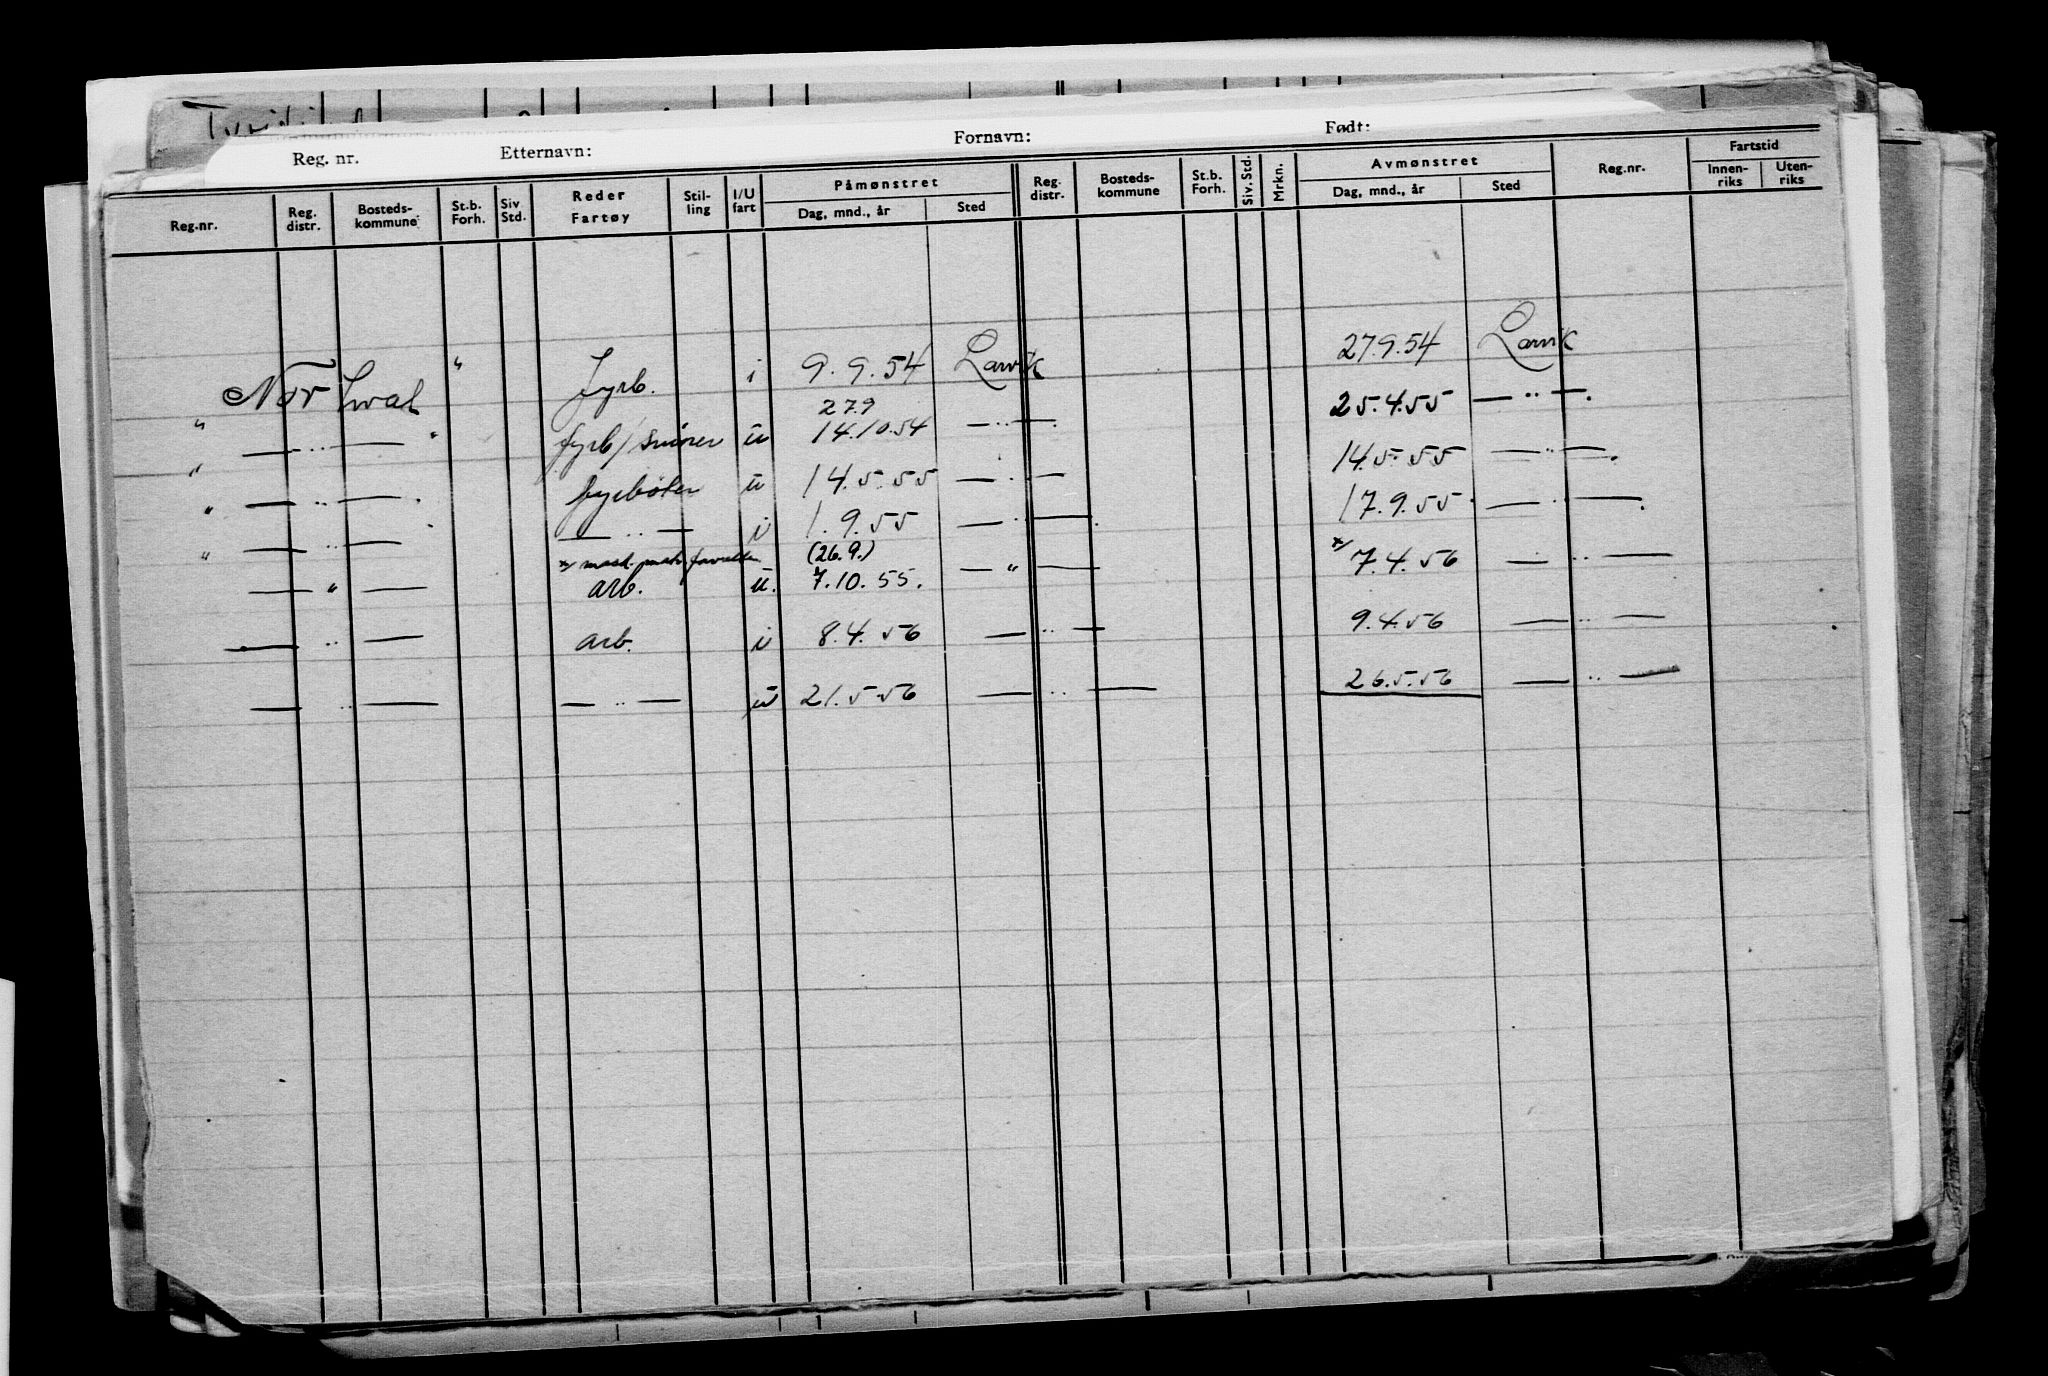 Reg. nr. Etternavn: Fornavn: Født:
Reg.nr. Reg. distr. Bosteds-kommune St.b. Forh. Siv. Std. Reder Fartøy Stil-ling I/U fart Påmønstret Dag, mnd., år Sted Reg. distr. Bosteds-kommune St.b. Forh. Siv. Std. Mrkn. Avmønstret Dag, mnd., år Sted Reg.nr. Fartstid Innen-riks Uten-riks
Norhval " Fyrb. i 9.9.54 Larvik 27.9.54 Larvik
27.9
" — .. — " fyrb/smører u 14.10.54 — .. — 25.4.55 — .. —
" — .. — fyrbøter u 14.5.55 — .. — 14.5.55 — .. —
" — .. — — .. — i 1.9.55 — .. — 17.9.55 — .. —
x/ (26.9.)
" — " — arb. u. 7.10.55. — " — x/ 7.4.56 — .. —
— .. — arb. i 8.4.56 — .. — 9.4.56 — .. —
— .. — — .. — u 21.5.56 — .. — 26.5.56 — .. —